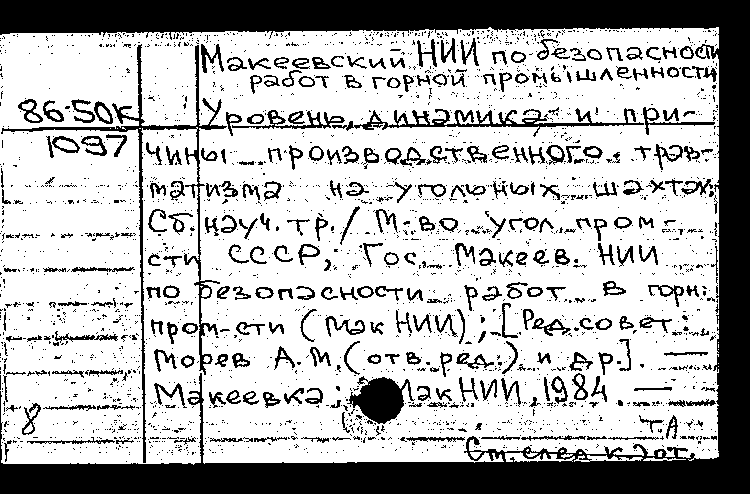 Макеевский НИИ по безопасности
работ в горной промышленности
86-50К Уровень, динамика и при-
1097 чины производственного трав-
матизма на угольных шахтах:
Сб. науч. тр. / М-во угол. пром-
сти СССР; Гос. Макеев. НИИ
по безопасности работ в горн.
пром-сти (МакНИИ); [Ред. совет:
Морев А.М. (отв. ред.) и др.]. —
Макеевка; МакНИИ, 1984. —
8 Т.А
См. след к-рт.